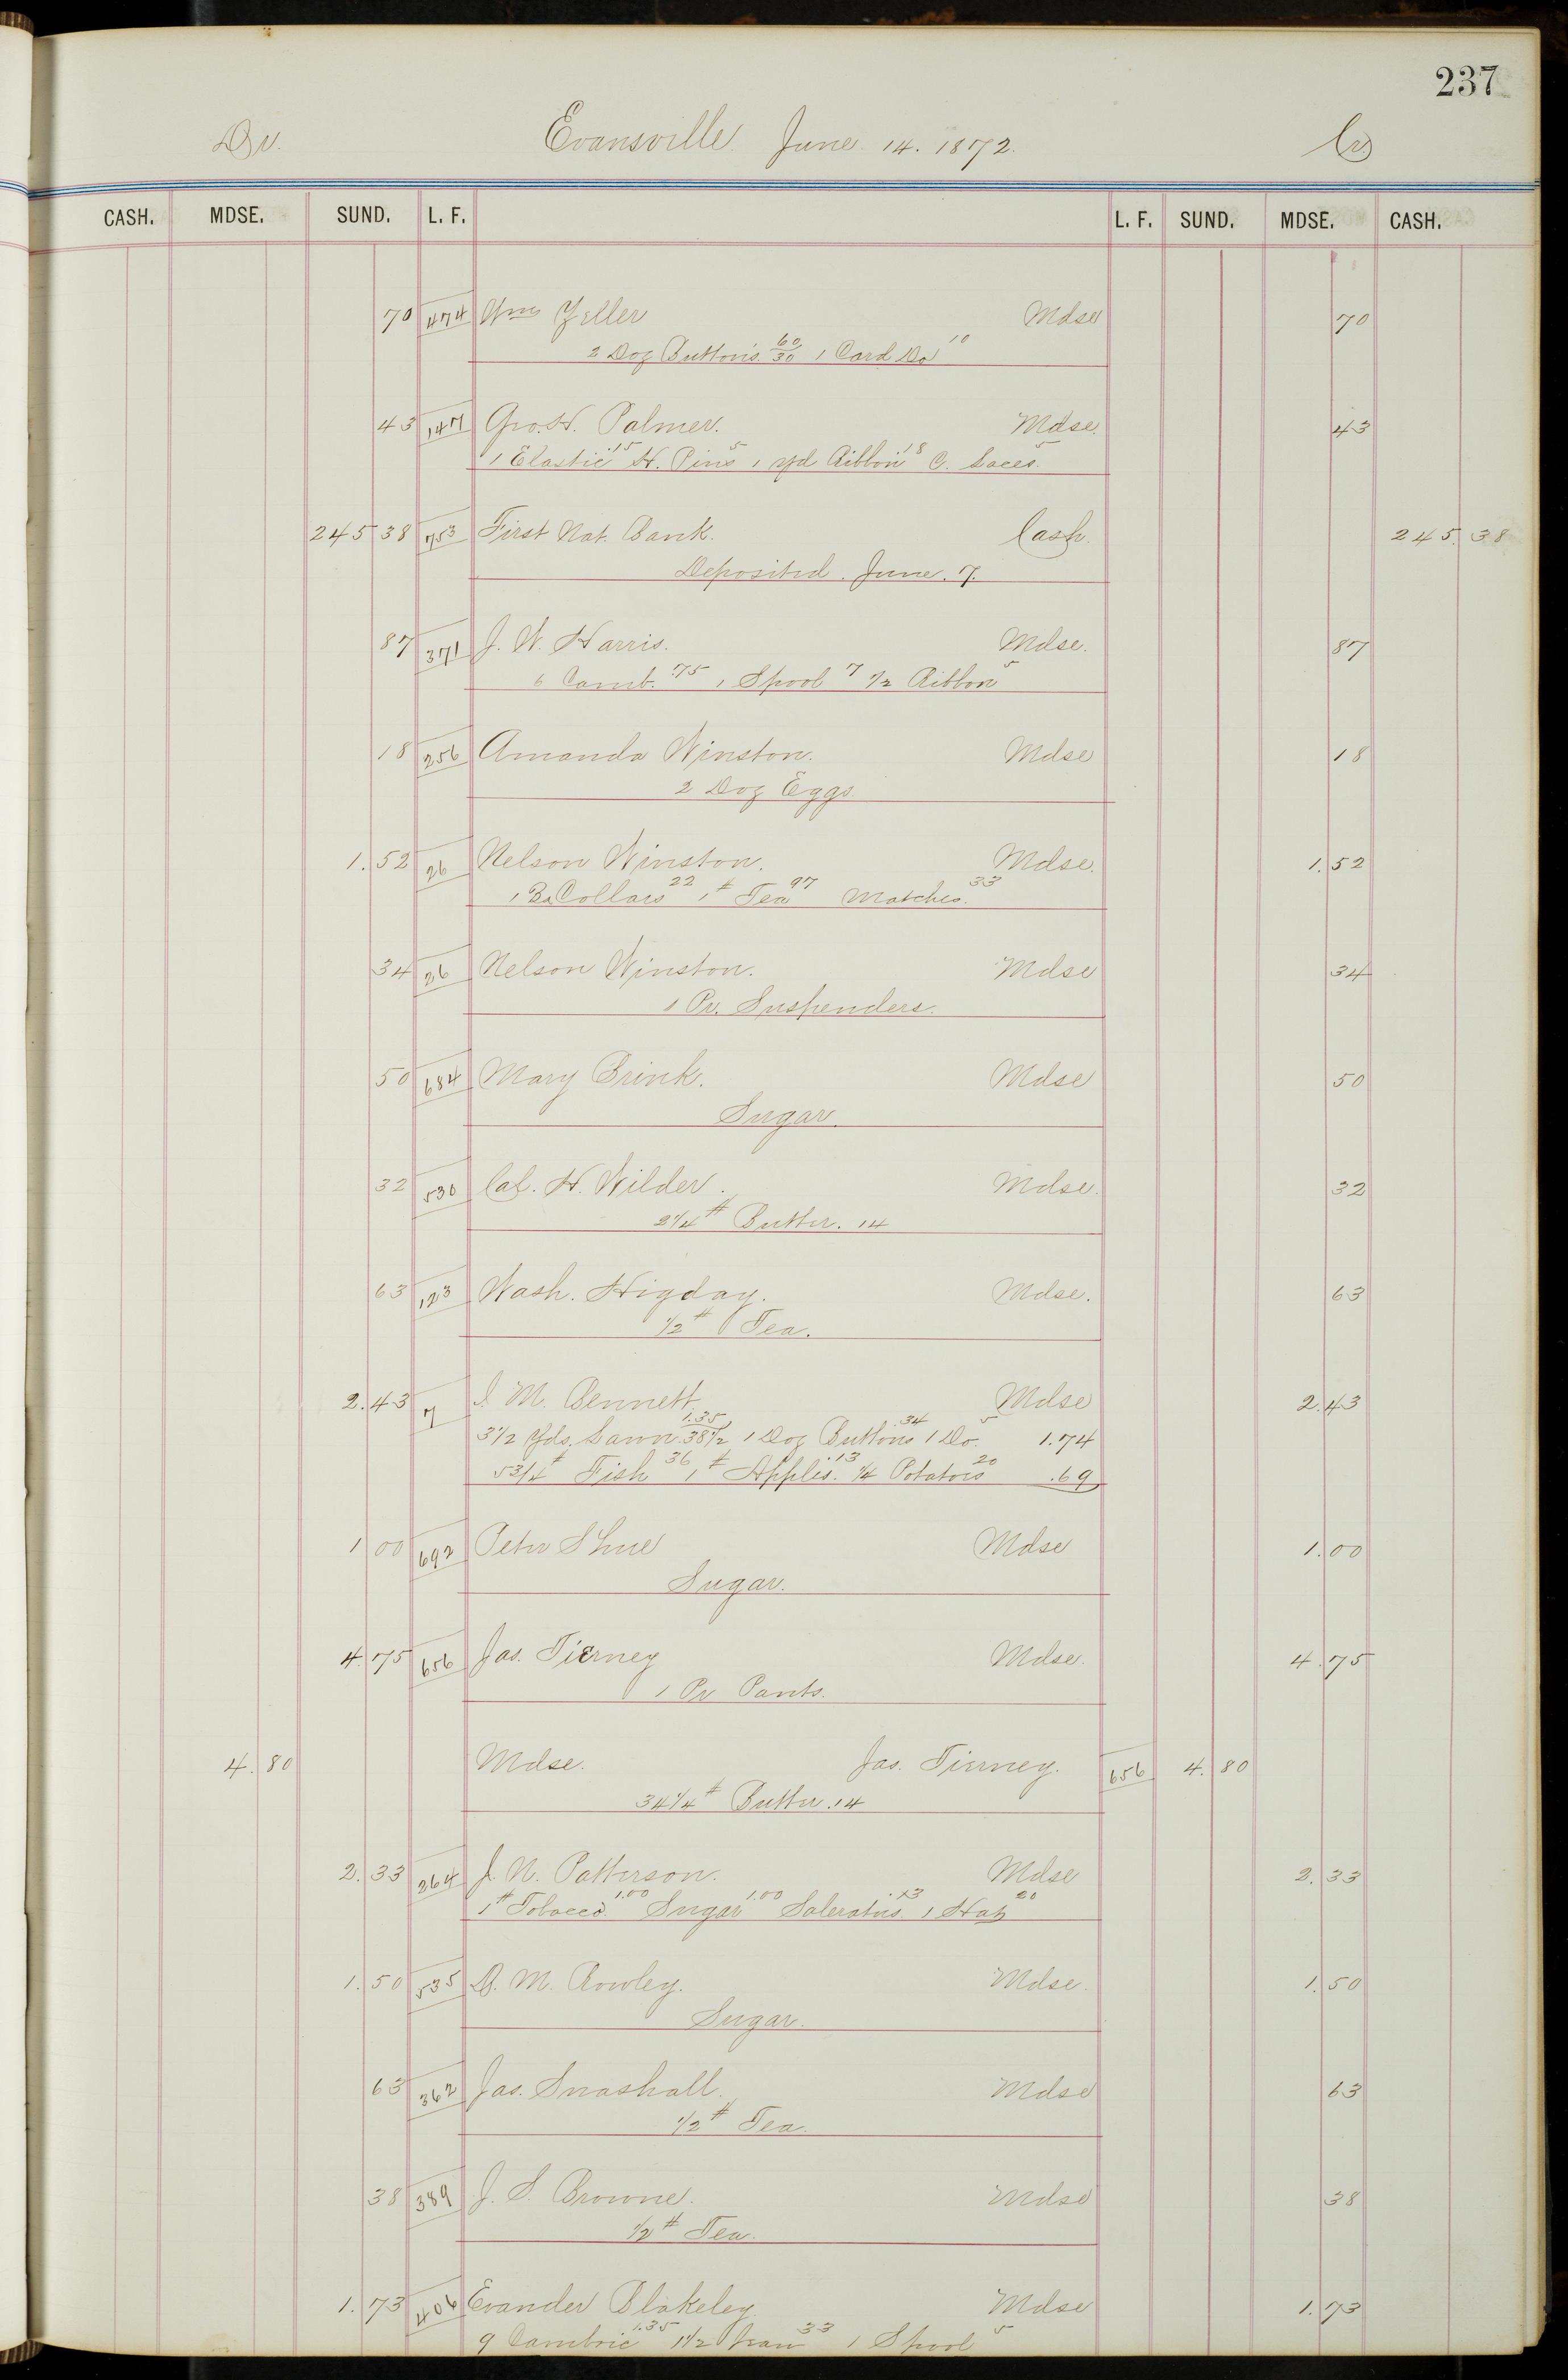 237
Dr. Evansville June 14. 1872. Cr
CASH. MDSE. SUND. L. F. L. F. SUND. MDSE. CASH.
70 474 Wm Zeller Mdse 70
2 Doz Buttons. 60/30 1 Card Do 10
43 147 Geo. H. Palmer. Mdse. 43
1 Elastic 15 H. Pins 5 1 yd Ribbon 18 C. Laces. 5
245 38 753 First Nat. Bank. Cash. 245. 38
Deposited. June. 7.
87 371 J. W. Harris. Mdse. 87
6 Camb. .75 1 Spool 7 1/2 Ribbon 5
18 256 Amanda Winston. Mdse 18
2 Doz Eggs
1.52 26 Nelson Winston. Mdse. 1.52
1 Bx Collars 22 1# Tea 97 Matches. 33
34 26 Nelson Winston. Mdse 34
1 Pr. Suspenders.
50 684 Mary Brink. Mdse 50
Sugar.
32 530 Cal. H. Wilder. Mdse. 32
2 1/4# Butter. 14
63 123 Wash. Higday. Mdse. 63
1/2# Tea.
2.43 7 I. M. Bennett. Mdse 2.43
3 1/2 Yds. Lawn 1.35/38 1/2 1 Doz Buttons .34 1 Do. 5 1.74
5 3/4# Fish 36 1# Apples. .13 1/4 Potatoes 20 .69
1 00 692 Peter Shue Mdse 1.00
Sugar.
4.75 656 Jas. Tierney Mdse. 4.75
1 Pr Pants.
4.80 Mdse. Jas. Tierney. 656 4.80
34 1/4# Butter .14
2.33 264 J. N. Patterson. Mdse 2.33
1# Tobacco. 1.00 Sugar 1.00 Saleratus. .13 1 Hat 20
1.50 535 D. M. Rowley. Mdse. 1.50
Sugar.
63 362 Jas. Snashall. Mdse 63
1/2# Tea.
38 389 J. S. Browne. Mdse 38
1/2# Tea.
1.73 406 Evander Blakeley Mdse 1.73
9 Cambric 1.35 1 1/2 33 1 Spool 5